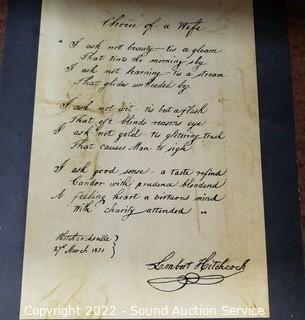 Choice of a Wife
" I ask not beauty - tis a gleam
That tints the morning sky
I ask not learning - tis a stream
That glides unheeded by
I ask not wit - tis but a flash
That oft blinds reasons eye
I ask not gold - tis glittering trash
That causes Man to sigh
I ask good sense - a taste refined
Candor with prudence blendend
A feeling heart a virtuous mind
With charity attended "
Hitchcocksville
27th March 1831
Lambert Hitchcock
Copyright 2022 - Sound Auction Service